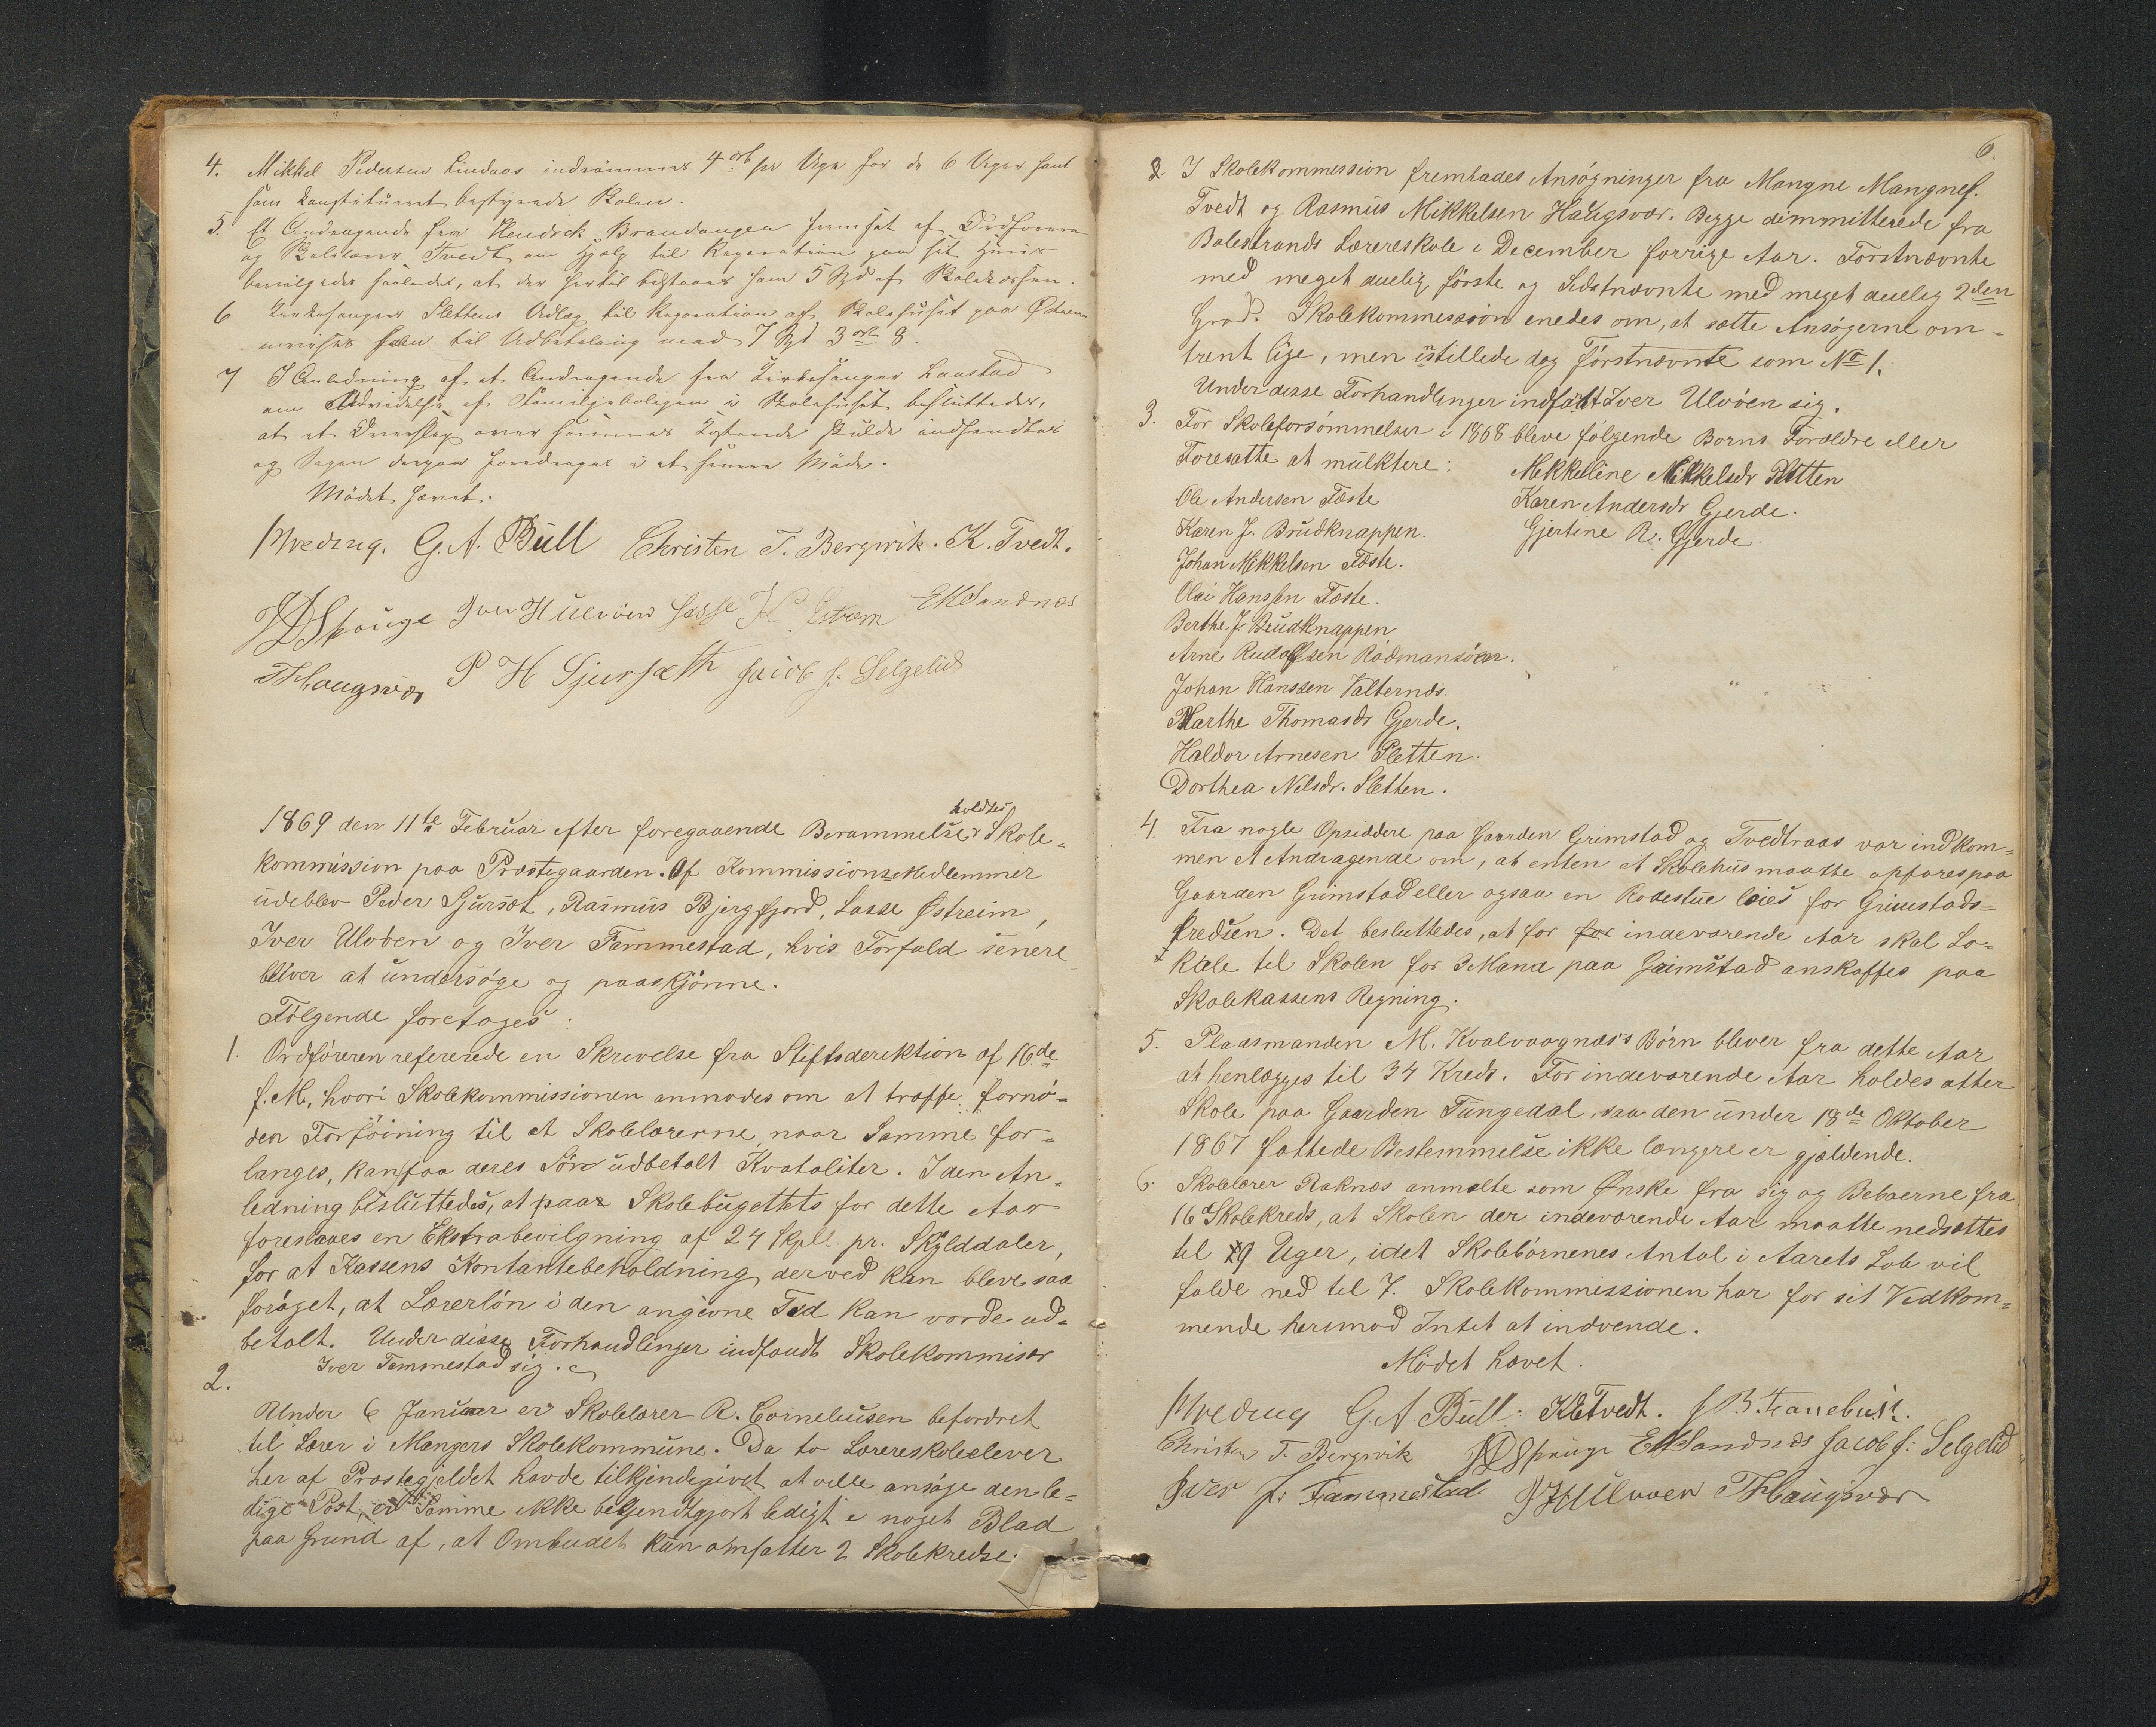 4. Mikkel Pedersen Lindaas indrømmes 4 ort pr Uge for de 6 Uger han
som Konstitueret bestyrede Skolen.
5. Et Andragende fra Hendrik Brandangen fremsat af Ordføreren
og Skolelærer Tvedt om Hjælp til Reparation paa sit Huus
bevilgedes saaledes, at der hertil tilstaaes ham 5 Spd af Skolekassen.
6 Kirkesanger Slettens Udlæg til Reparation af Skolehuset paa Østrem
anvises ham til Udbetaling med 7 Spd 3 ort 8.
7 I Anledning af et Andragende fra Kirkesanger Lonstad
om Udvidelse af Familjeboligen i Skolehuset besluttedes,
at et Overslag over sammes Kostende skulde indhendtes
og Sagen derpaa foredrages i et senere Møde.
Mødet hævet.
Hvedrng. G. A. Büll Christen T. Bergsvik. K. Tvedt.
Spauge Iver H Ulvøen Lasse K Østrem EMSandnæs
THaugsvær P H Sjursæth Jacob J. Selgelid
1869 den 11te Februar efter foregaaende Berammelse holdtes Skole-
kommission paa Præstegaarden. Af Kommissions-Medlemmer
udeblev Peder Sjursæt, Rasmus Bjergfjord, Lasse Østreim,
Iver Uløen og Iver Femmestad, hvis Forfald senere
bliver at undersøge og paaskjønne.
Følgende foretoges:
1. Ordføreren refererede en Skrivelse fra Stiftsdirektion af 16de
f. M., hvori Skolekommissionen anmodes om at træffe fornø-
den Forføining til at Skolelærerne, naar Samme for-
langes, kan faa deres Løn udbetalt Kvataliter. I den An-
ledning besluttedes, at paa Skolebugettets for dette Aar
foreslaaes en Ekstrabevilgning af 24 Skpll. pr. Skylddaler,
for at Kassens Kontantebeholdning derved kan bleve saa
forøget, at Lærerløn i den angivne Tid kan vorde ud-
betalt. Under disse Forhandlinger indfandt Skolekommisær
Iver Femmestad sig.
2.
Under 6 Januar er Skolelærer R. Corneliusen befordret
til Lærer i Mangers Skolekommune. Da to Lærereskoleelever
her af Præstegjeldet havde tilkjendegivet at ville ansøge den le-
dige Post, er Samme ikke bekjendtgjort ledigt i noget Blad
paa Grund af, at Ombudet kun omfatter 2 Skolekredse.
6.
I Skolekommission fremlades Ansøgninger fra Mangne Mangnes.
Tvedt og Rasmus Mikkelsen Haugsvær. Begge dimmitterede fra
Balestrands Lærereskole i December forrige Aar. Førstnævnte
med meget duelig første og Sidstnævnte med meget duelig 2den
Grad. Skolekommission enedes om, at sætte Ansøgerne om-
trent lige, men instillede dog Førstnævnte som No 1.
Under disse Forhandlinger indfandt Iver Ulvøen sig.
3. For Skoleforsømmelser i 1868 bleve følgende Børns Forældre eller
Foresatte at mulktere:
Mikkeline Mikkelsdr Sletten
Ole Andersen Fæste.
Karen Andersdr Gjerde.
Karen J. Brudknappen.
Gjertine R. Gjerde.
Johan Mikkelsen Fæste.
Olai Hanssen Fæste.
Berthe J. Brudknappen
Arne Rudolfsen Rødmansøen.
Johan Hanssen Valternæs.
Marthe Thomasdr Gjerde.
Haldor Arnesen Sletten.
Dorthea Nilsdr. Sletten.
4. Fra nogle Opsiddere paa Gaarden Grimstad og Tvedtraas var indkom-
men et Andragende om, at enten et Skolehus maatte opføres paa
Gaarden Grimstad eller ogsaa en Rodestue leies for Grimstads-
kredsen. Det besluttedes, at for for indeværende Aar skal Lo-
kale til Skolen for 3 Mand paa Grimstad anskaffes paa
Skolekassens Regning.
5. Pladsmanden M. Kvalvaagnæs's Børn bliver fra dette Aar
at henlægges til 34 Kreds. For indeværende Aar holdes atter
Skole paa Gaarden Tungedal, saa den under 18de Oktober
1867 fattede Bestemmelse ikke længere er gjældende.
6. Skolelærer Raknæs anmelte som Ønske fra sig og Beboerne fra
16de Skolekreds, at Skolen der indeværende Aar maatte nedsættes
til 9 Uger, idet Skolebørnenes Antal i Aarets Løb vil
falde ned til 7. Skolekommissionen har for sit Vedkom-
mende herimod Intet at indvende.
Mødet hævet.
Hvedrng G A Bull. K Tvedt. J B. Fanebust.
Christen T. Bergsvik Spauge EMSandnæs Jacob J: Selgelid
Iver J: Fammestad IHUlvøen THaugsvær